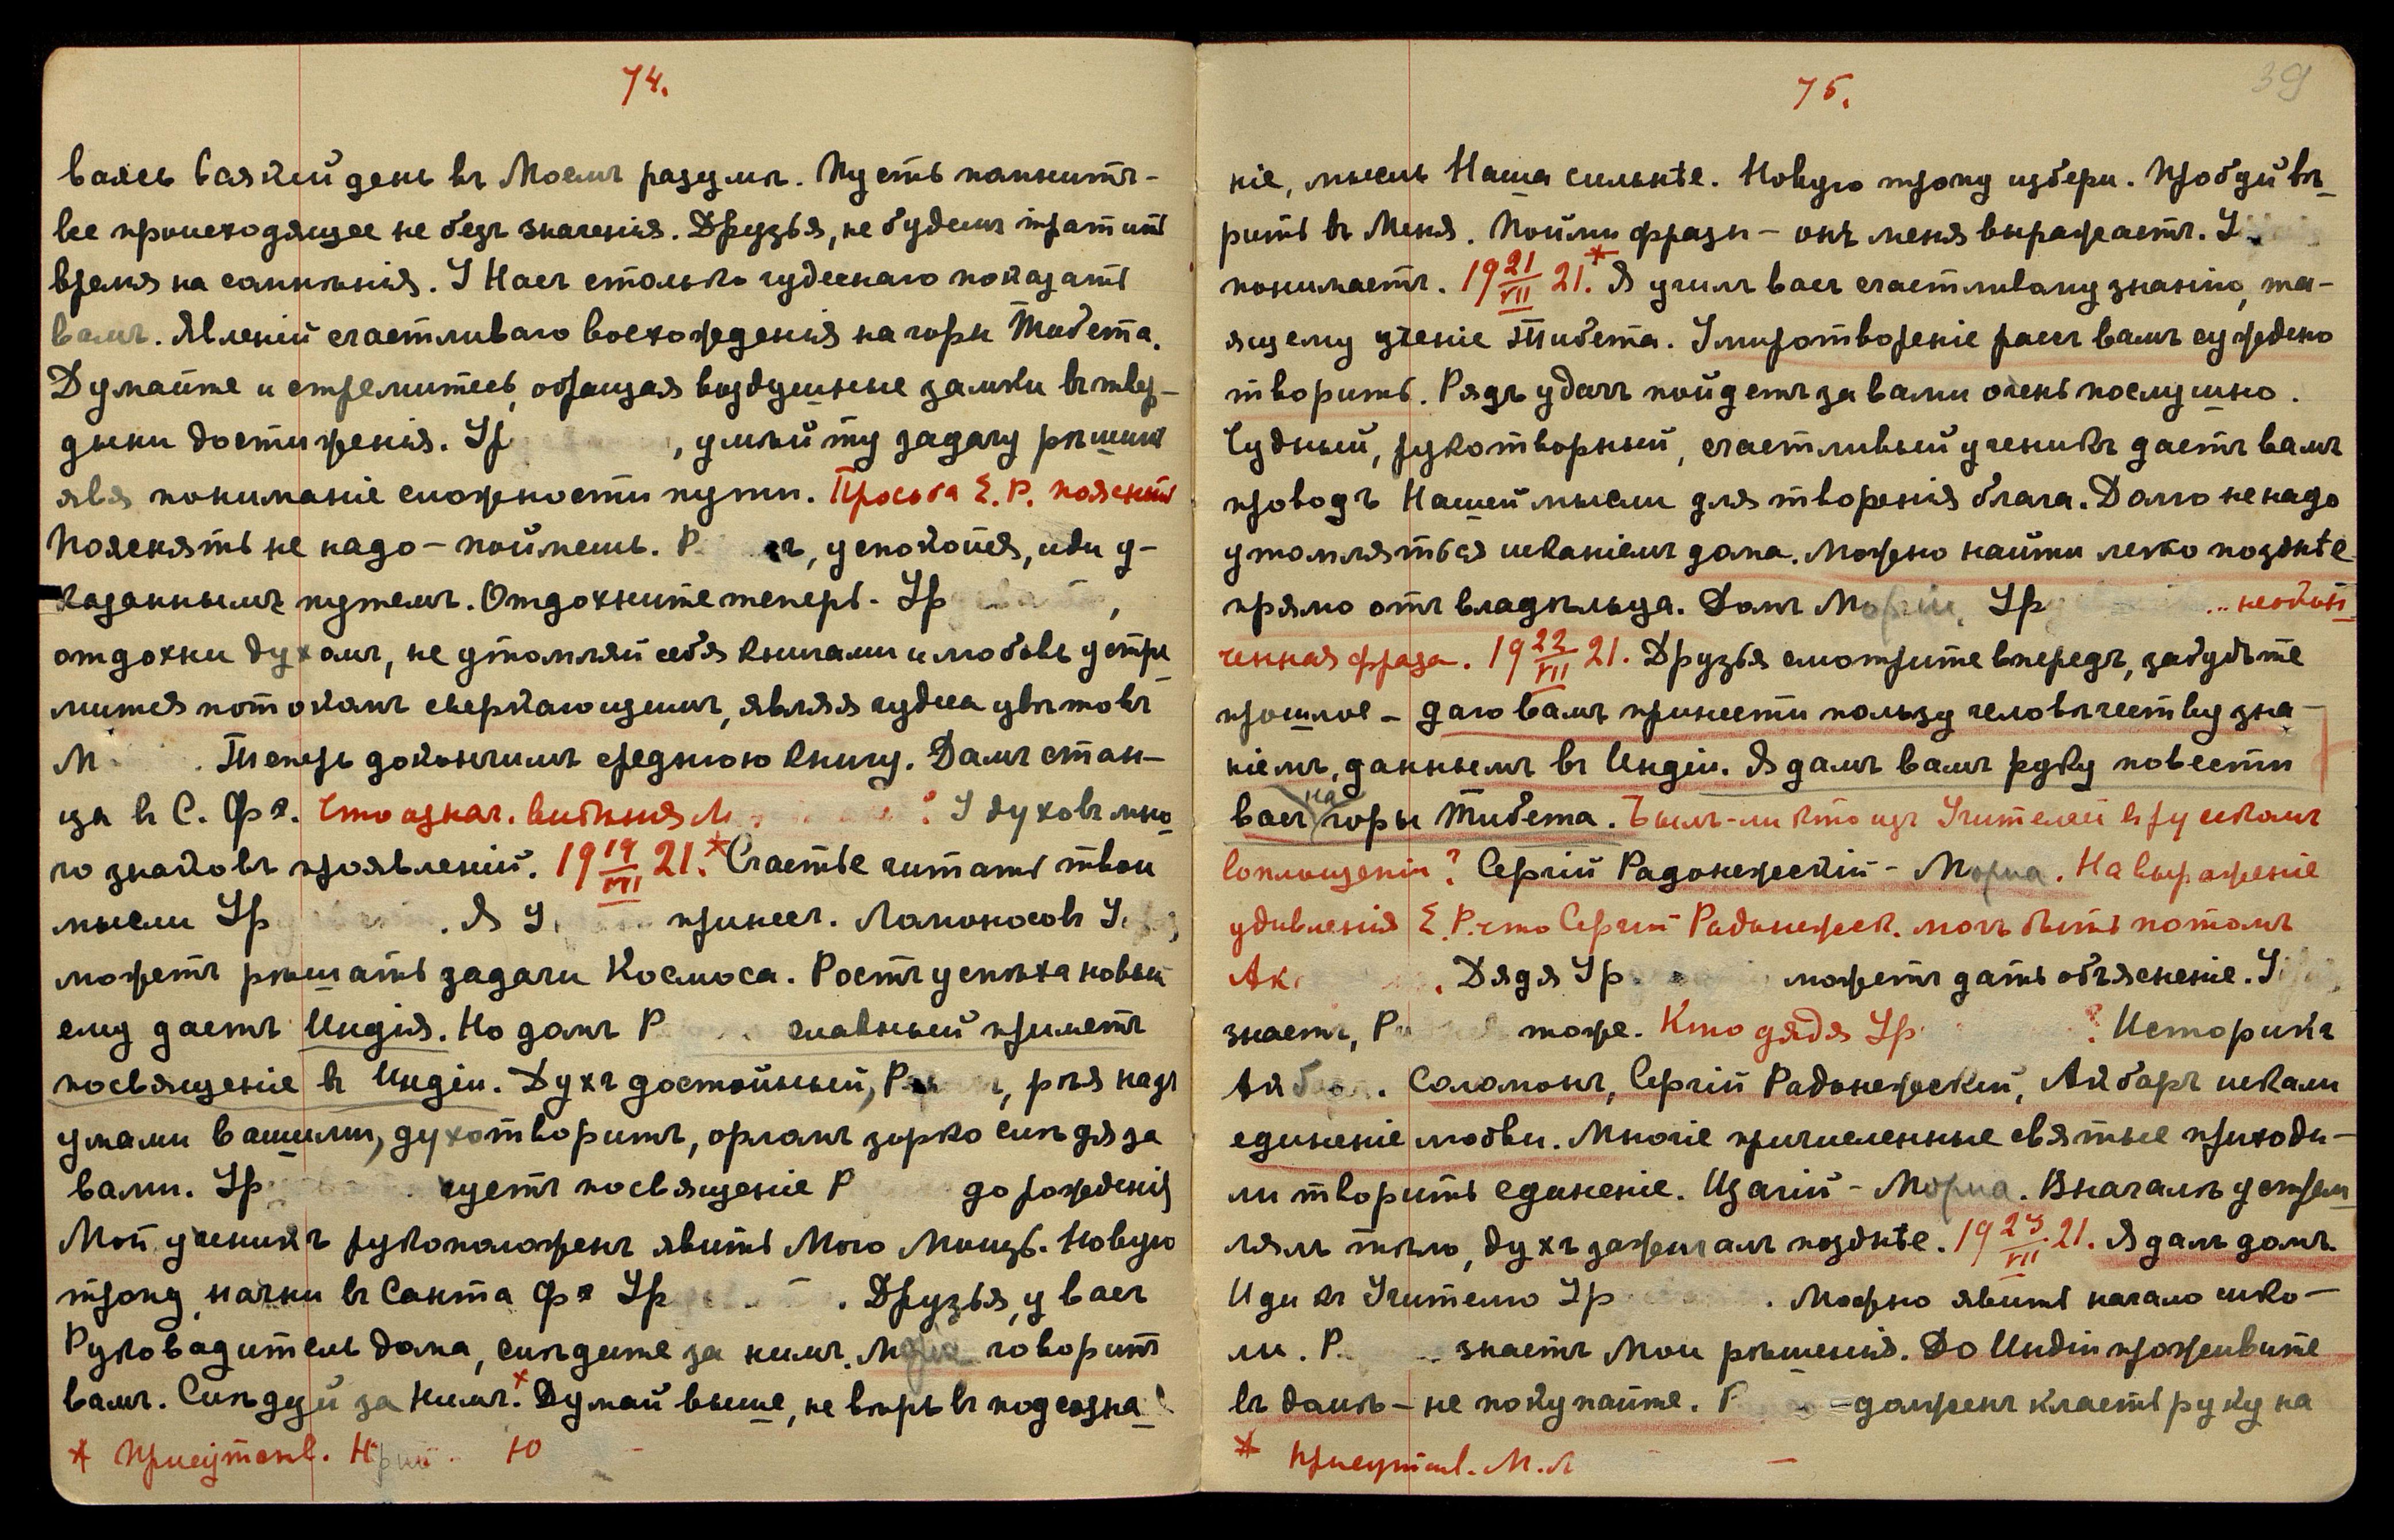 74.
ваясь всякий день въ Моемъ разумѣ. Пусть помнитъ-
все происходящее не безъ значенія. Друзья, не будемъ тратить
время на сомнѣнія. У Насъ столько чудеснаго показать
вамъ. Явленій счастливаго восхожденія на горы Тибета.
Думайте и стремитесь, обращая воздушные замки въ твер-
дыни достиженія. Ур , умѣй ту задачу рѣшить
явя пониманіе сложности пути. Просьба Е.Р. пояснить
Пояснять не надо – поймешь. Р ъ, успокойся, иди у-
казаннымъ путемъ. Отдохните теперь - Ур ,
отдохни духомъ, не утомляй себя книгами и любовь устре
мится потокомъ сверкающимъ, являя чудеса цвѣтовъ
М . Теперь докончимъ среднюю книгу. Домъ стан-
ца въ С. Фэ. Что означ. видѣнія М ? У духовъ мно
го знаковъ проявленій. 19 19/VII 21.* Счастье читать твои
мысли Ур . Я У принесъ. Ломоносовъ У
можетъ рѣшать задачи Космоса. Ростъ успѣха новый
ему дастъ Индія. Но домъ Р главный приметъ
посвященіе въ Индіи. Духъ достойный, Р , рѣя надъ
умами вашими, духотворитъ, орломъ зорко слѣдя за
вами. Ур чуетъ посвященіе Р до рожденія
Мой ученикъ рукоположенъ явить Мою Мощь. Новую
тропу начни въ Санта Фэ Ур . Друзья, у васъ
Руководитель дома, слѣдите за нимъ. Морія говоритъ
вамъ. Слѣдуй за Нимъ.× Думай выше, не вѣрь въ подсозна
* Присутств. Н Ю –
75.
39
ніе, мысль Наша сильнѣе. Новую тропу избери. Пробуй вѣ-
рить въ Меня. Пойми фразы – онѣ меня выражаетъ. У
понимаетъ. 19 21/VII 21.* Я училъ васъ счастливому знанію, та-
ящему ученіе Тибета. Умиротвореніе расъ вамъ суждено
творить. Рядъ удачъ пойдетъ за вами очень послушно.
Чудный, рукотворный, счастливый ученикъ дастъ вамъ
проводъ Нашей мысли для творенія блага. Долго не надо
утомляться исканіемъ дома. Можно найти легко позднѣе
прямо отъ владѣльца. Домъ Моріи. Ур ... неокон
ченная фраза. 19 22/VII 21. Друзья смотрите впередъ, забудьте
прошлое – даю вамъ принести пользу человѣчеству зна-
ніемъ, даннымъ въ Индіи. Я дамъ вамъ руку повести
васъ на горы Тибета. Былъ-ли кто изъ Учителей въ русскомъ
воплощеніи? Сергій Радонежскій - Морія. На выраженіе
удивленія Е.Р. что Сергій Радонежск. могъ быть потомъ
Ак . Дядя Ур можетъ дать объясненіе. У
знаетъ, Р тоже. Кто дядя Ур ? Историкъ
Акбара. Соломонъ, Сергій Радонежскій, Акбаръ искали
единеніе любви. Многіе причисленные святые приходи-
ли творить единеніе. Исагій - Морія. Вначалѣ устрем
лялъ тѣло, духъ зажигалъ позднѣе. 19 23/VII 21. Я далъ домъ.
Иди къ Учителю Ур . Можно явить начало шко-
лы. Р знаетъ Мои рѣшенія. До Индіи проживите
въ домѣ – не покупайте. Р долженъ класть руку на
* Присутств. М.Л –